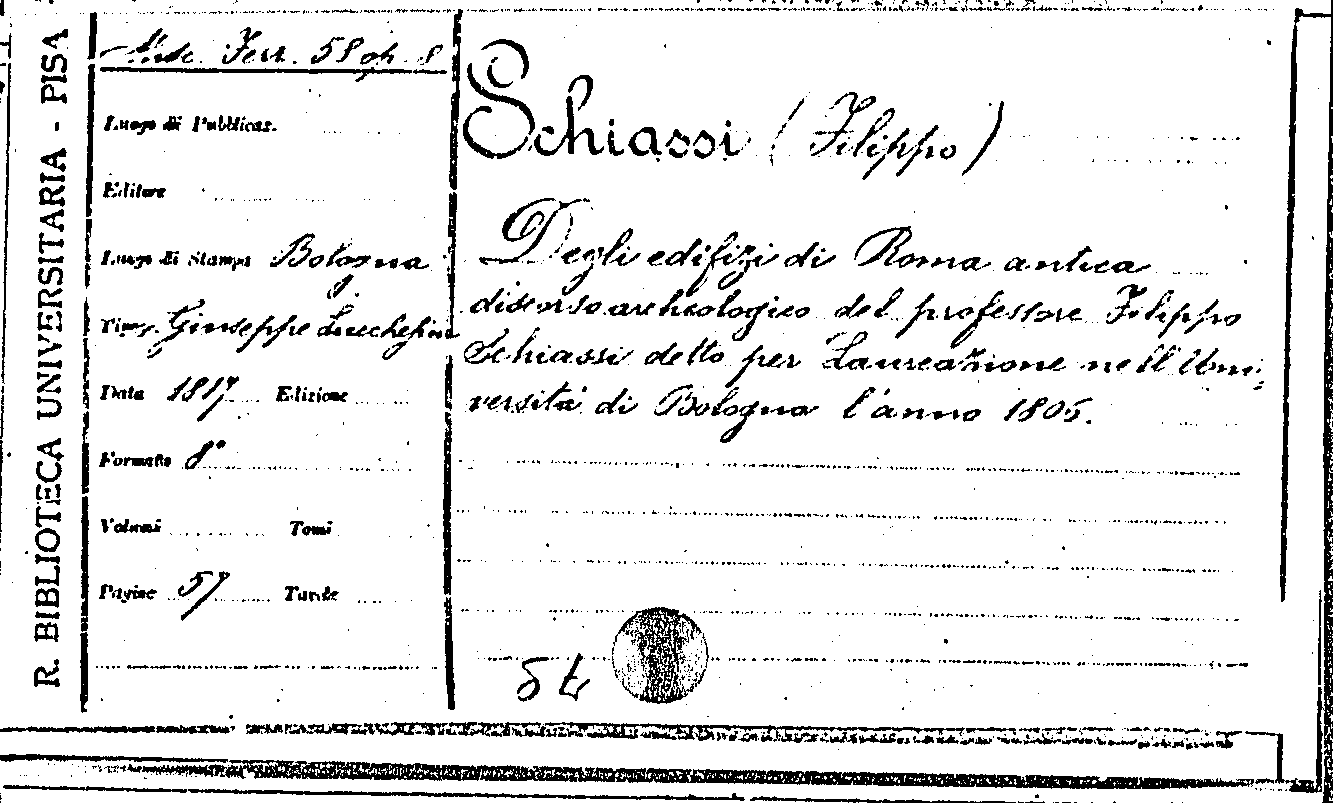 R. BIBLIOTECA UNIVERSITARIA - PISA
Misc. Ferr. 58 op. 8
Luogo di Pubblicaz.
Editore
Luogo di Stampa Bologna
Tipogr. Giuseppe Lucchesini
Data 1817 Edizione
Formato 8°
Volumi Tomi
Pagine 57 Tavole
Schiassi (Filippo)
Degli edifizi di Roma antica
discorso archeologico del professore Filippo
Schiassi detto per Laureazione nell' Uni-
versità di Bologna l'anno 1805.